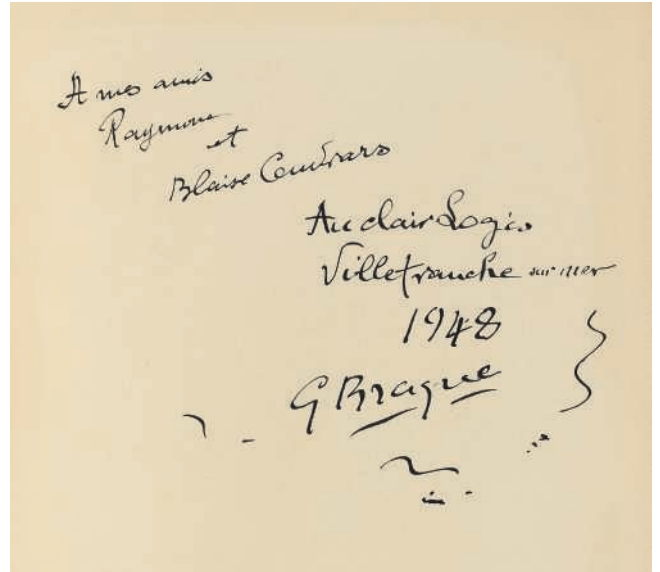 A mes amis
Raymone
et
Blaise Cendrars
Au clair Logis
Villefranche sur mer
1948
G Braque